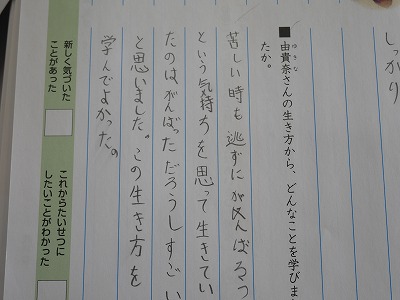 しっかり
■由貴奈さんの生き方から、どんなことを学びま
ゆきな
たか。
苦しい時も逃ずにがんばろうっ
という気持ちを思って生きてい
たのはがんばっただろうしすごい
と思いました。この生き方を
学んでよかった。
新しく気づいた
ことがあった
これからたいせつに
したいことがわかった